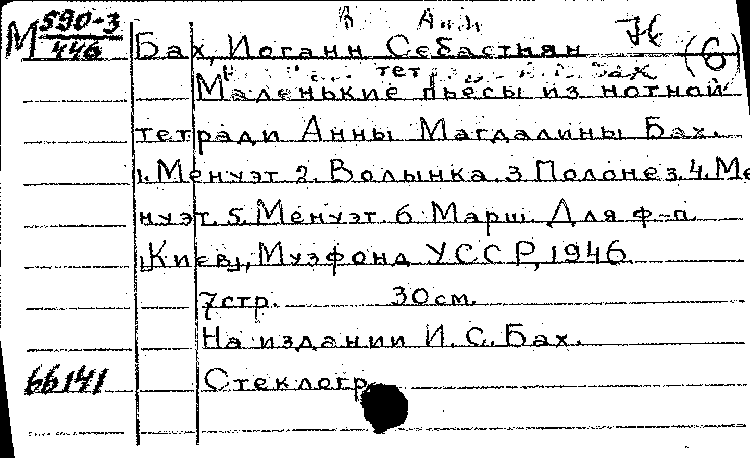 М 590-3
446
Бах, Иоганн Себастиян (6)
Маленькие пьесы из нотной
тетради Анны Магдалины Бах.
1. Менуэт 2. Волынка. 3 Полонез. 4. Ме
нуэт. 5. Менуэт. 6. Марш. Для ф-п.
[Киев], Музфонд УССР, 1946
7 стр. 30 см.
На издании И. С. Бах.
66141 Стеклогр.